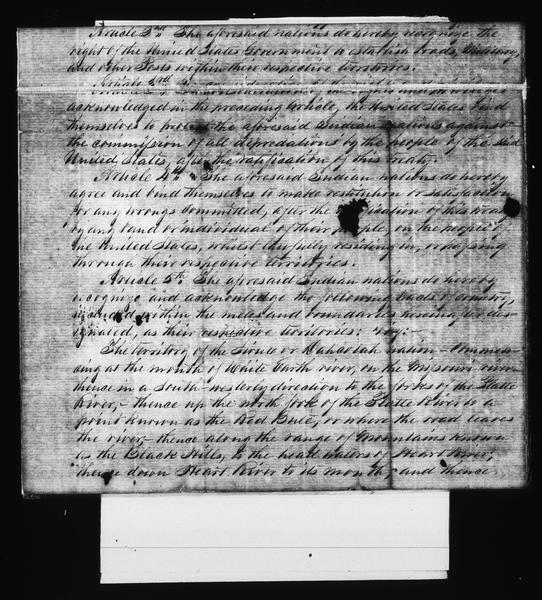 Article 2nd. The aforesaid nations do hereby recognize the
right of the United States Government to establish roads, military,
and other Posts within their respective territories.
Article 3rd. In consideration of the rights and privileges
acknowledged in the preceding Article, the United States bind
themselves to protect the aforesaid Indian nations against
the commission of all depredations by the people of the said
United States, after the ratification of this treaty.
Article 4th. The aforesaid Indian nations do hereby
agree and bind themselves to make restitution or satisfaction
for any wrongs committed, after the ratification of this treaty
by any band or individual of their people, on the people of
the United States, whilst lawfully residing in, or passing
through their respective territories.
Article 5th. The aforesaid Indian nations do hereby
recognize and acknowledge the following tracts of country,
included within the metes and boundaries hereinafter des-
ignated, as their respective territories: viz:
The territory of the Sioux or Dahcotah nation - commen-
cing at the mouth of White Earth river, on the Missouri river
thence in a Southwesterly direction to the forks of the Platte
River, - thence up the north fork of the Platte River to a
point known as the Red Bute, or where the road leaves
the river, - thence along the range of Mountains known
as the Black Hills, to the head waters of Heart River;
thence down Heart River to its mouth; and thence